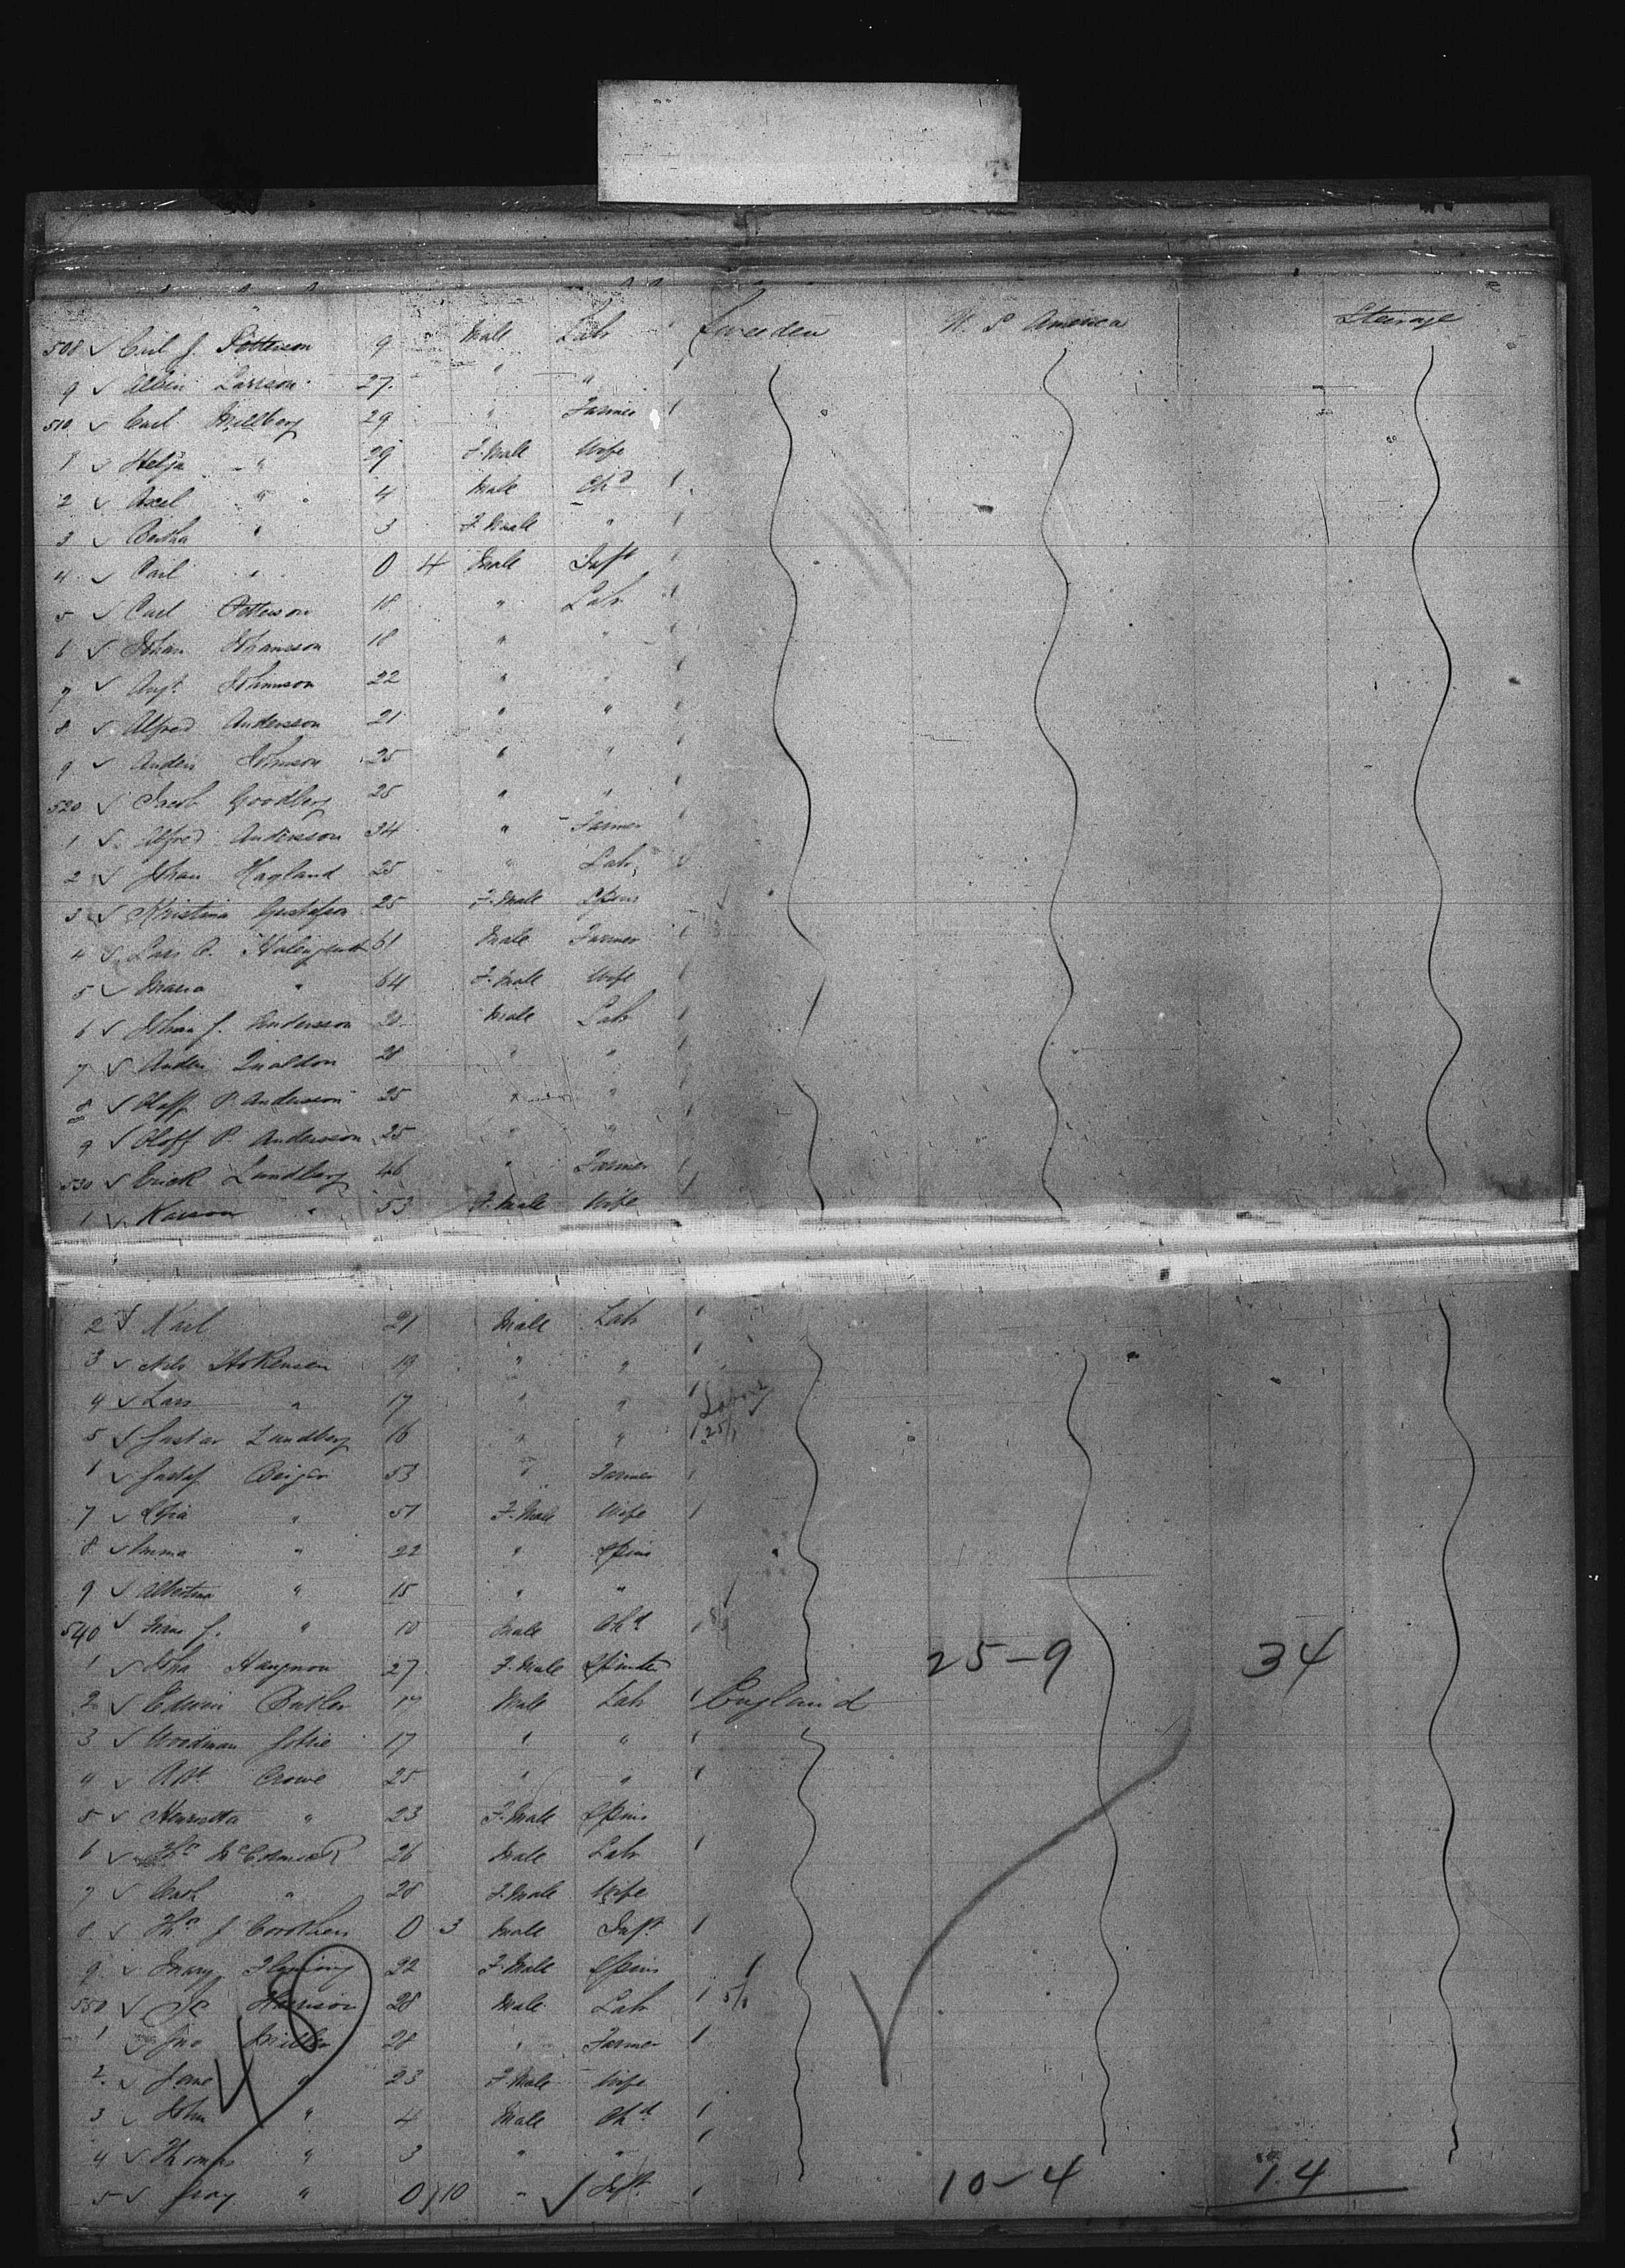 508 ✓ Carl J. Petterson 9 Male Labr 1 Sweeden U. S America Steerage
9 ✓ Albin Larrson 27 " " 1
510 ✓ Carl Millberg 29 " Farmer 1
1 ✓ Helja " 29 F. Male Wife
2 ✓ Axel " 4 Male Chd 1
3 ✓ Bertha " 3 F. Male " 1
4 ✓ Carl " 0 4 Male Inft 1
5 ✓ Carl Petterson 18 " Labr 1
6 ✓ Johan Johansson 18 " " 1
7 ✓ Augt Johnnson 22 " " 1
8 ✓ Alfred Anderson 21 " " 1
9 ✓ Anders Johnson 25 " " 1
520 ✓ Jacob Goodberg 25 " " 1
1 ✓ Alfred Andersson 34 " Farmer 1
2 ✓ Johan Hagland 25 " Labr 1
3 ✓ Kristina Gustafson 25 F. Male Spins
4 ✓ Lars 61 Male Farmer 1
5 ✓ Maria " 64 F. Male Wife 1
6 ✓ Johan J. Andersson 20 Male Labr 1
7 ✓ Anders 28 " " 1
8 ✓ Oloff P. Anderson 25 " " 1
9 ✓ Oloff P. Andersson 25 " " 1
530 ✓ Erick Lundberg 46 " Farmer 1
1 ✓ " 53 F. Male Wife 1
2 ✓ Karl 21 Male Labr 1
3 ✓ Nils 19 " " 1
4 ✓ Lars " 17 " " 1
5 ✓ Gustav Lundberg 16 " " 1
✓ Gustaf 53 " Farmer 1
7 ✓ " 51 F. Male Wife 1
8 ✓ Emma " 22 " Spins
9 ✓ Albertina " 15 " "
540 ✓ Frans J. " 10 Male Chd 1
1 ✓ 27 F. Male Spinster 25-9 34
2 ✓ Edwin Butler 17 Male Labr 1 England
3 ✓ Woodman 17 " " 1
4 ✓ Crowe 25 " " 1
5 ✓ Henrietta " 23 F. Male Spins
6 ✓ Ths McCormick 26 Male Labr 1
7 ✓ " 28 F. Male Wife
8 ✓ Ths J 0 3 Male Inft 1
9 ✓ Mary Fleming 22 F. Male Spins
550 ✓ Harrison 28 Male Labr 1
1 ✓ Jno Miller 28 " Farmer 1
2 ✓ Jane " 23 F. Male Wife
3 ✓ John " 4 Male Chd 1
4 ✓ Thomas " 3 " " 1
5 ✓ " 0 10 " ✓ Inft 1 10-4 14
48